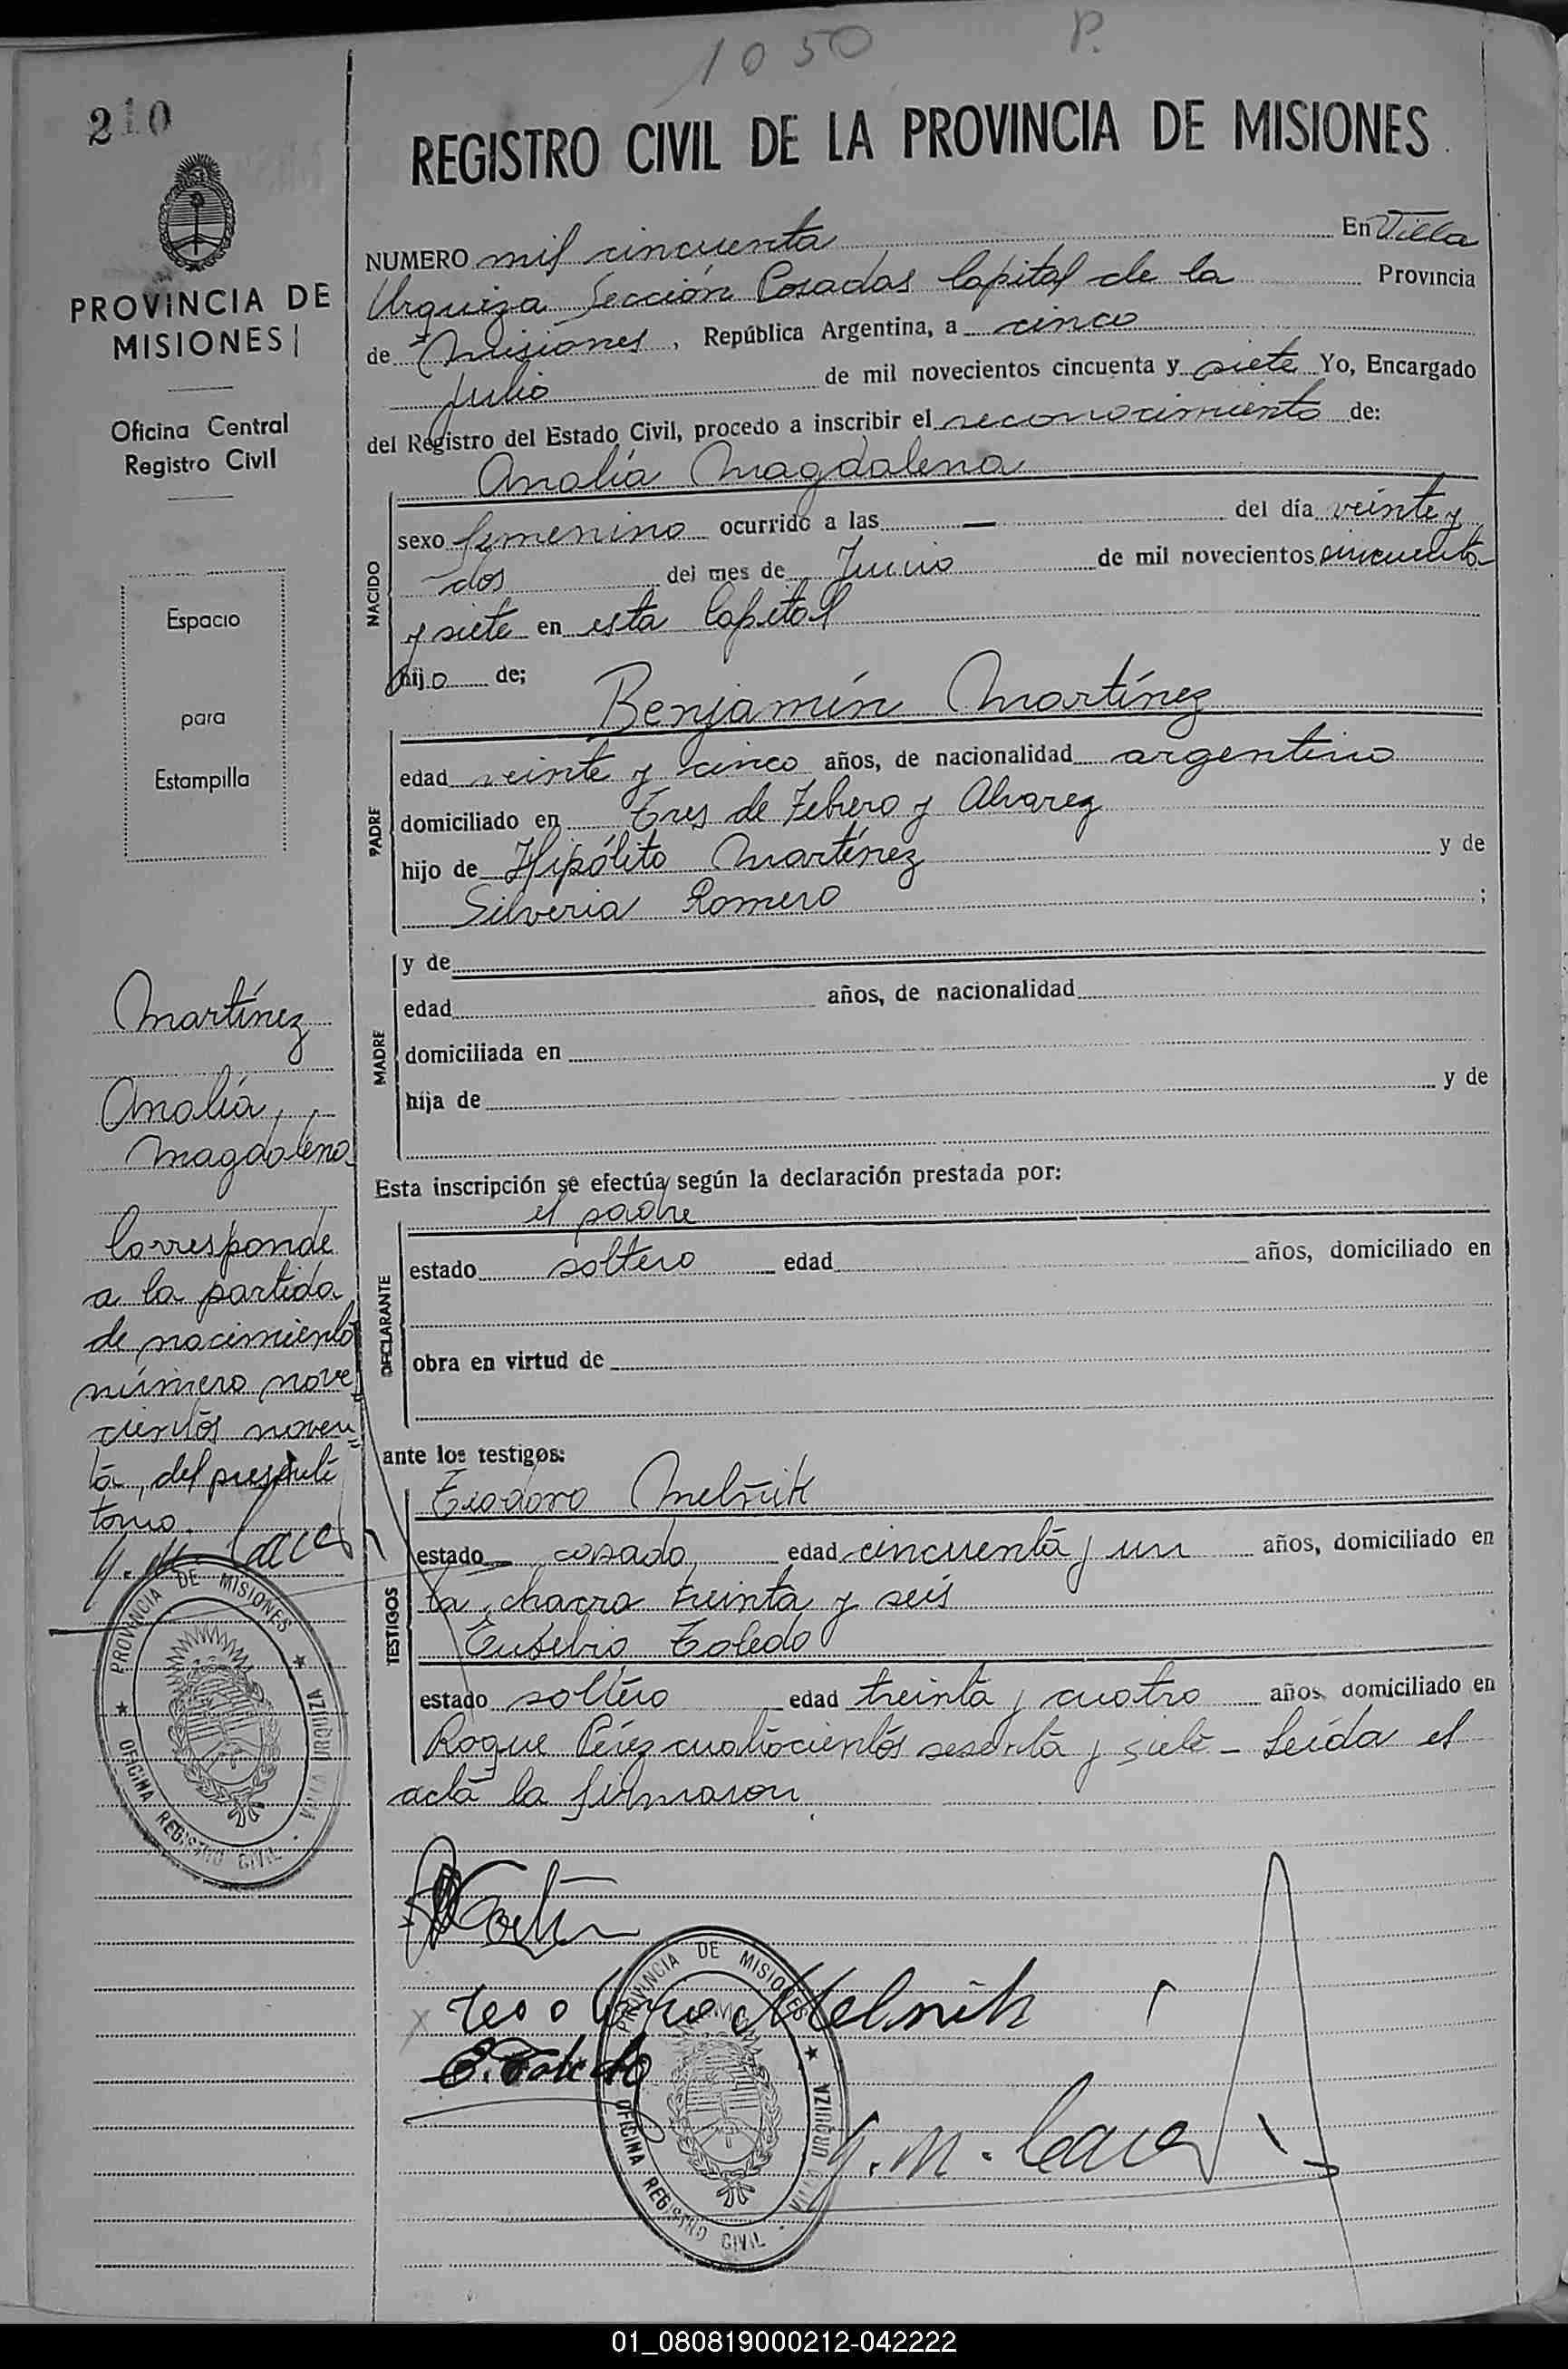 1050 P.
210
REGISTRO CIVIL DE LA PROVINCIA DE MISIONES
PROVINCIA DE
MISIONES
Oficina Central
Registro Civil
Espacio
para
Estampilla
Martínez
Analía
Magdalena
Corresponde
a la partida
de nacimiento
número nove
cientos noven
ta, del presente
tomo.
PROVINCIA DE MISIONES
OFICINA REGISTRO CIVIL · VILLA URQUIZA
NUMERO mil cincuenta En Villa
Urquiza Sección Posadas Capital de la Provincia
de Misiones, República Argentina, a cinco
Julio de mil novecientos cincuenta y siete Yo, Encargado
del Registro del Estado Civil, procedo a inscribir el reconocimiento de:
Analía Magdalena
NACIDO
sexo femenino ocurrido a las — del día veinte y
dos del mes de Junio de mil novecientos cincuenta
y siete en esta Capital
hijo de;
Benjamín Martínez
PADRE
edad veinte y cinco años, de nacionalidad argentino
domiciliado en Tres de Febrero y Alvarez
hijo de Hipólito Martínez y de
Silveria Romero ;
MADRE
y de
edad años, de nacionalidad
domiciliada en
hija de y de
Esta inscripción se efectúa según la declaración prestada por:
el padre
DECLARANTE
estado soltero edad años, domiciliado en
obra en virtud de
ante los testigos:
Teodoro Melnik
TESTIGOS
estado casado edad cincuenta y un años, domiciliado en
la chacra treinta y seis
Eusebio Toledo
estado soltero edad treinta y cuatro años, domiciliado en
Roque Pérez cuatrocientos sesenta y siete - Leída el
acta la firmaron
Teodoro Melnik
E. Toledo
PROVINCIA DE MISIONES
OFICINA REGISTRO CIVIL · VILLA URQUIZA
01_080819000212-042222